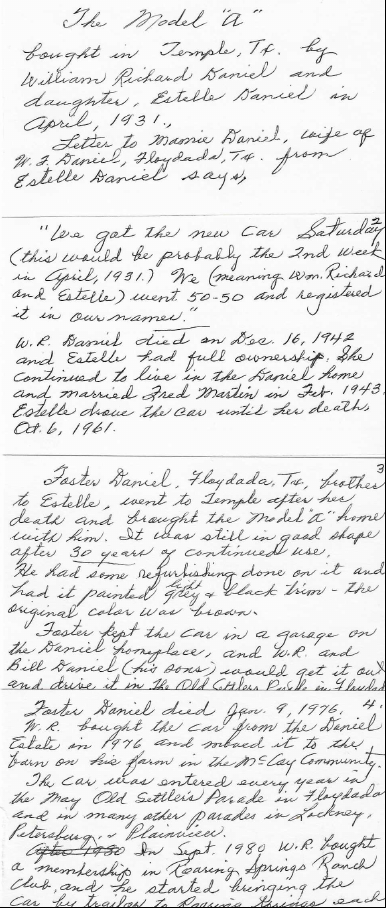 The Model "A"
bought in Temple, Tx. by
William Richard Daniel and
daughter, Estelle Daniel in
April, 1931.,
Letter to Mamie Daniel, wife of
W. F. Daniel, Floydada, Tx. from
Estelle Daniel says,
2
"We got the new car Saturday
(this would be probably the 2nd week
in April, 1931.) We (meaning Wm. Richard
and Estelle) went 50-50 and registered
it in our names."
W. R. Daniel died on Dec. 16, 1942
and Estelle had full ownership. She
continued to live in the Daniel home
and married Fred Martin in Feb. 1943.
Estelle drove the car until her death,
Oct. 6, 1961.
3
Foster Daniel, Floydada, Tx, brother
to Estelle, went to Temple after her
death and brought the Model "A" home
with him. It was still in good shape
after 30 years of continued use.
He had some refurbishing done on it and
had it painted light grey & black trim - the
original color was brown.
Foster kept the car in a garage on
the Daniel homeplace, and W.R. and
Bill Daniel (his sons) would get it out
and drive it in the Old Settlers Parade in Floydad
4.
Foster Daniel died Jan. 9, 1976.
W. R. bought the car from the Daniel
Estate in 1976 and moved it to the
barn on his farm in the McCoy Community.
The car was entered every year in
the May Old Settlers Parade in Floydada
and in many other parades in Lockney,
Petersburg, & Plainview.
After 1980 In Sept. 1980 W.R. bought
a membership in Roaring Springs Ranch
Club, and he started bringing the
car by trailer to Roaring Springs each